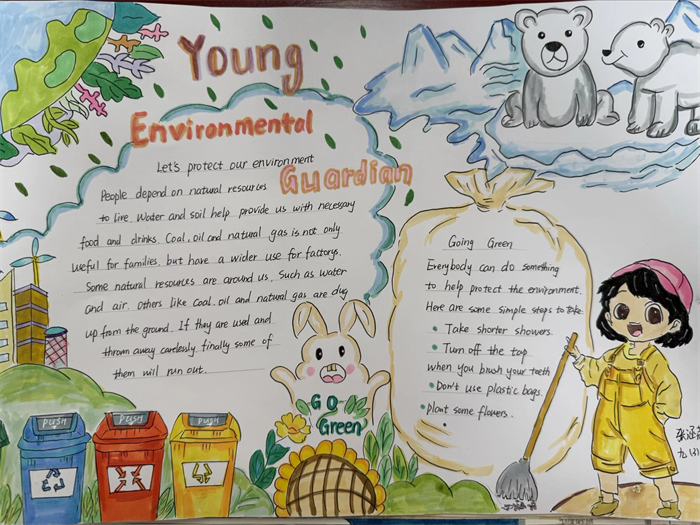 Young
Environmental
Guardian
Let's protect our environment
People depend on natural resources
to live. Water and soil help provide us with necessary
food and drinks. Coal, oil and natural gas is not only
useful for families, but have a wider use for factorys.
Some natural resources are around us, Such as water
and air. Others like Coal, oil and natural gas are dug
up from the ground. If they are used and
thrown away carelessly finally some of
them will run out.
Going Green
Everybody can do something
to help protect the environment.
Here are some simple stops to take
Take shorter showers.
Turn off the tap
when you brush your teeth
Don't use plastic bags.
plant some flowers.
GO
Green
PUSH
PUSH
PUSH